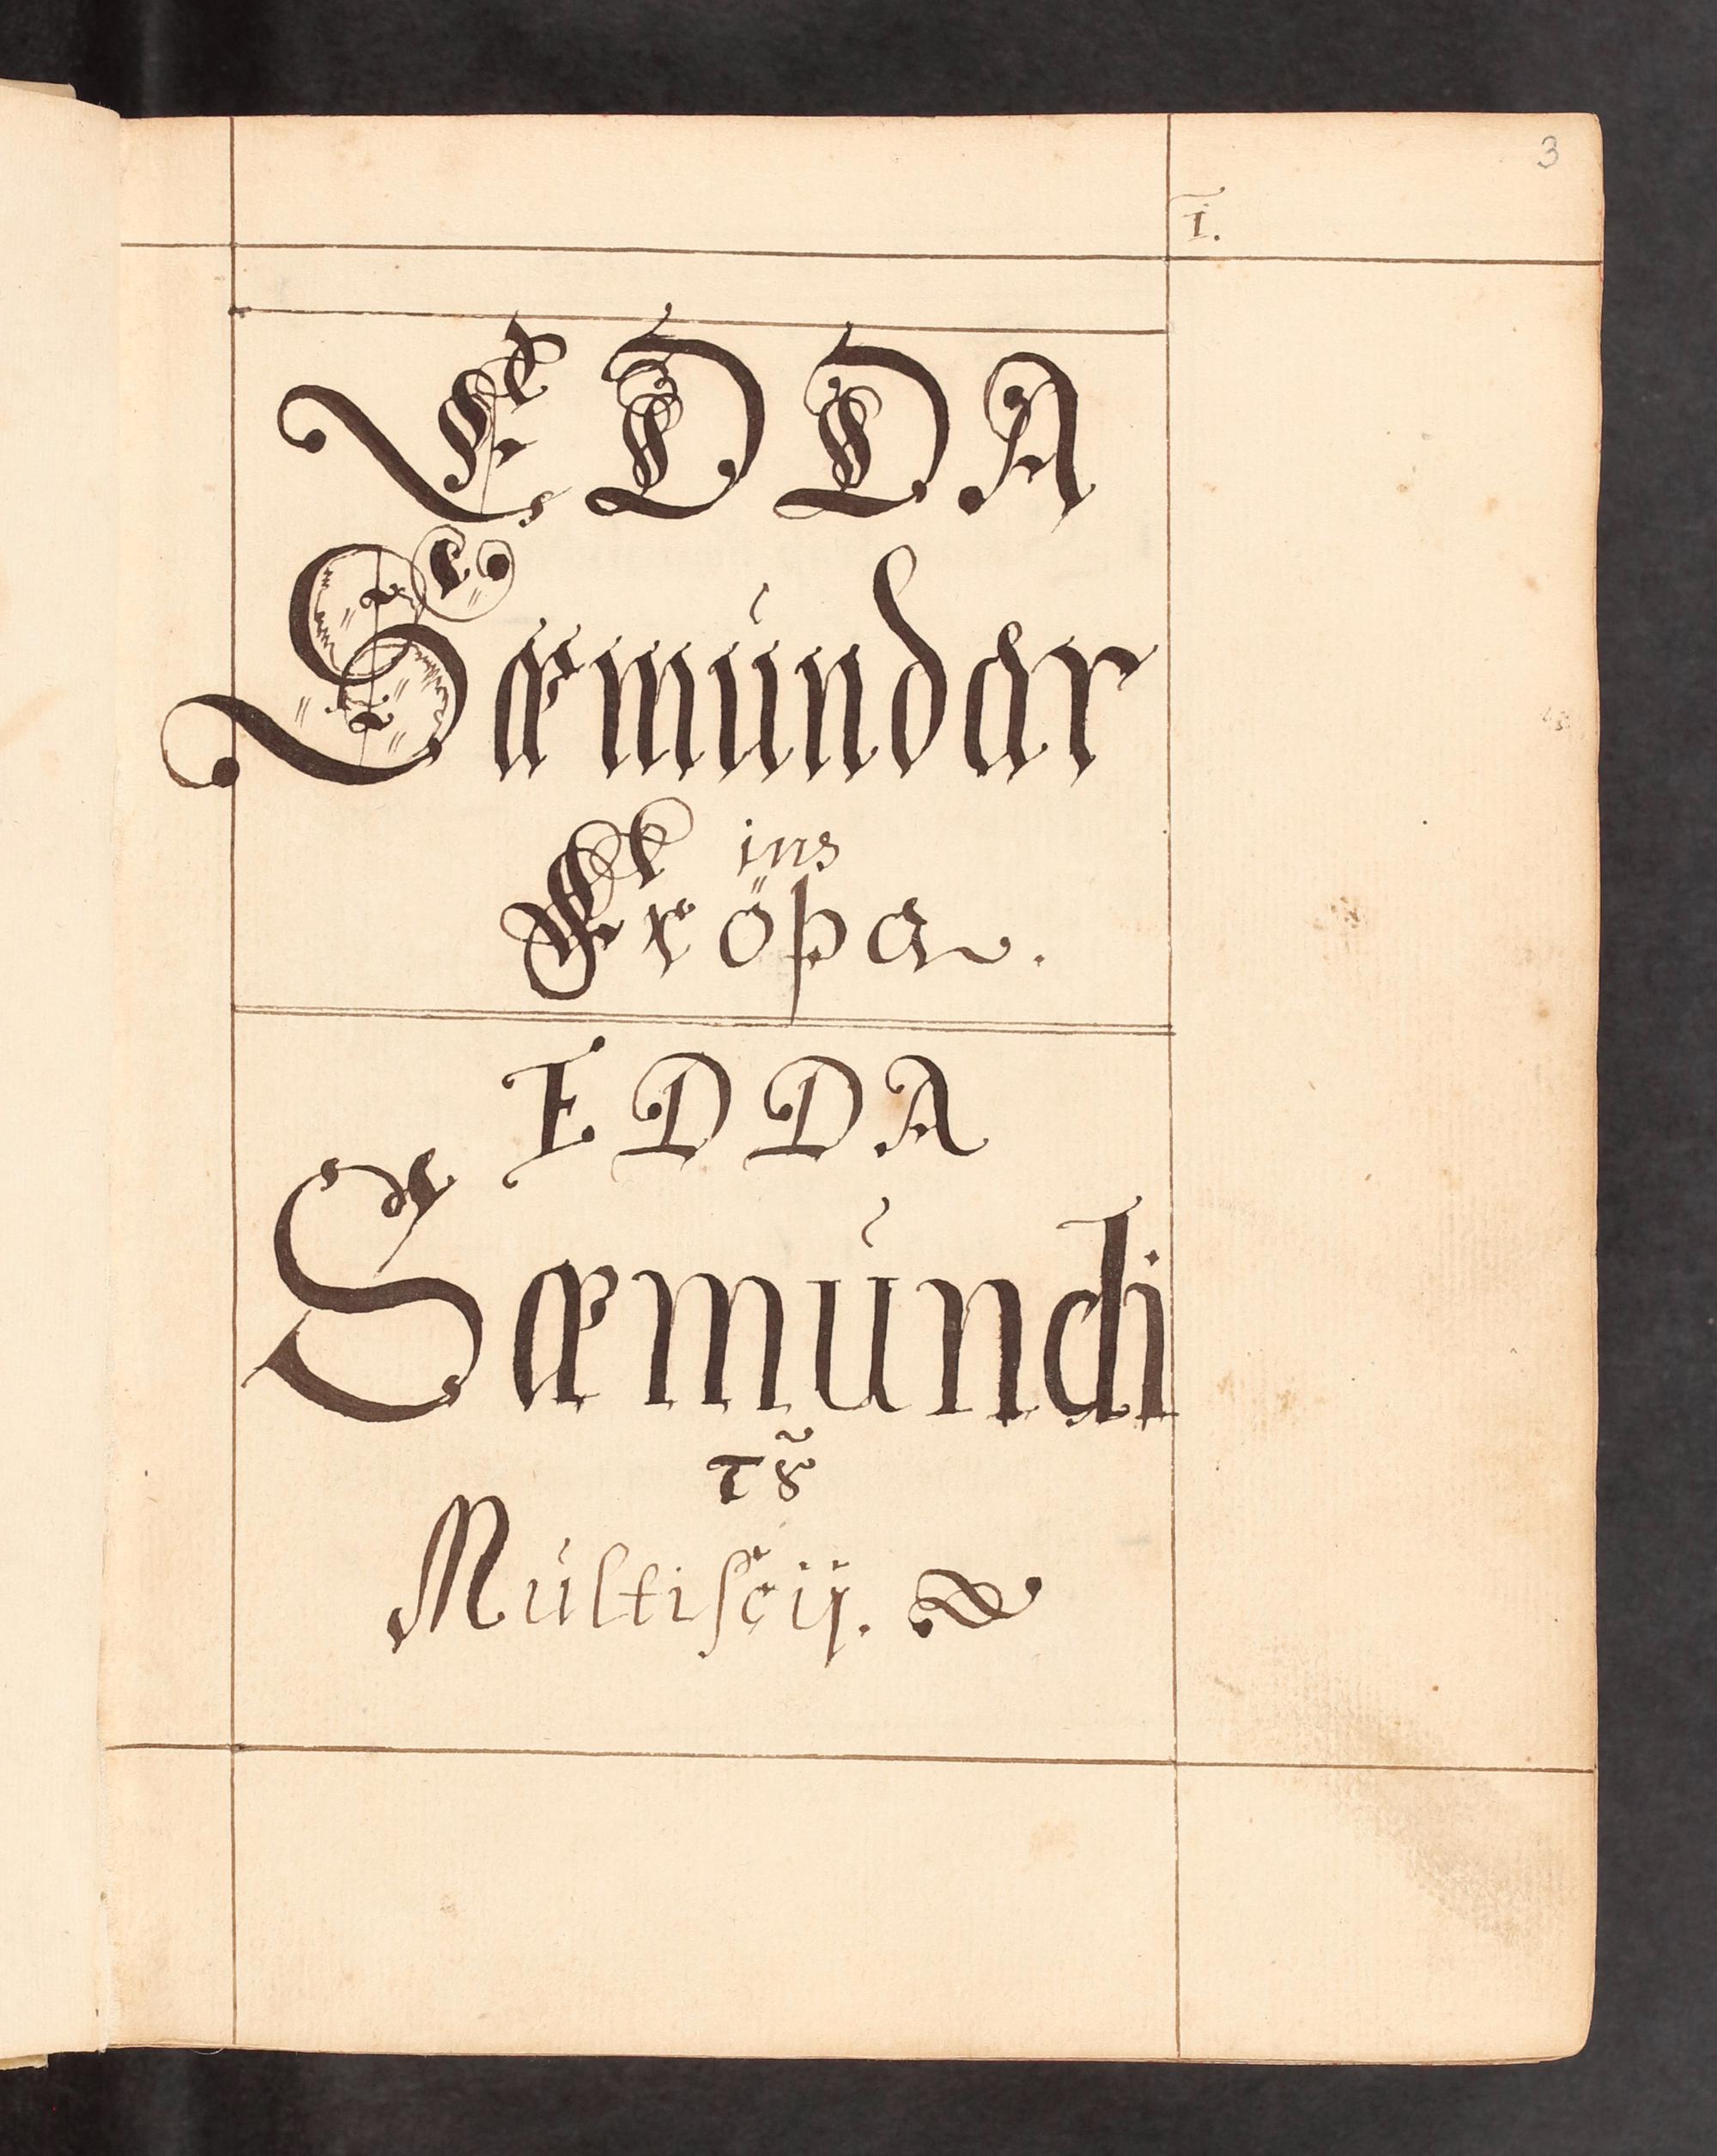 3
I.
EDDA
Sæmúndar
ins
Fröþa.
EDDA
Sæmúndi
Múltiſcij.